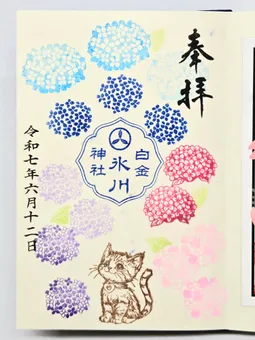 奉拝
白金
氷川
神社
令和七年六月十二日